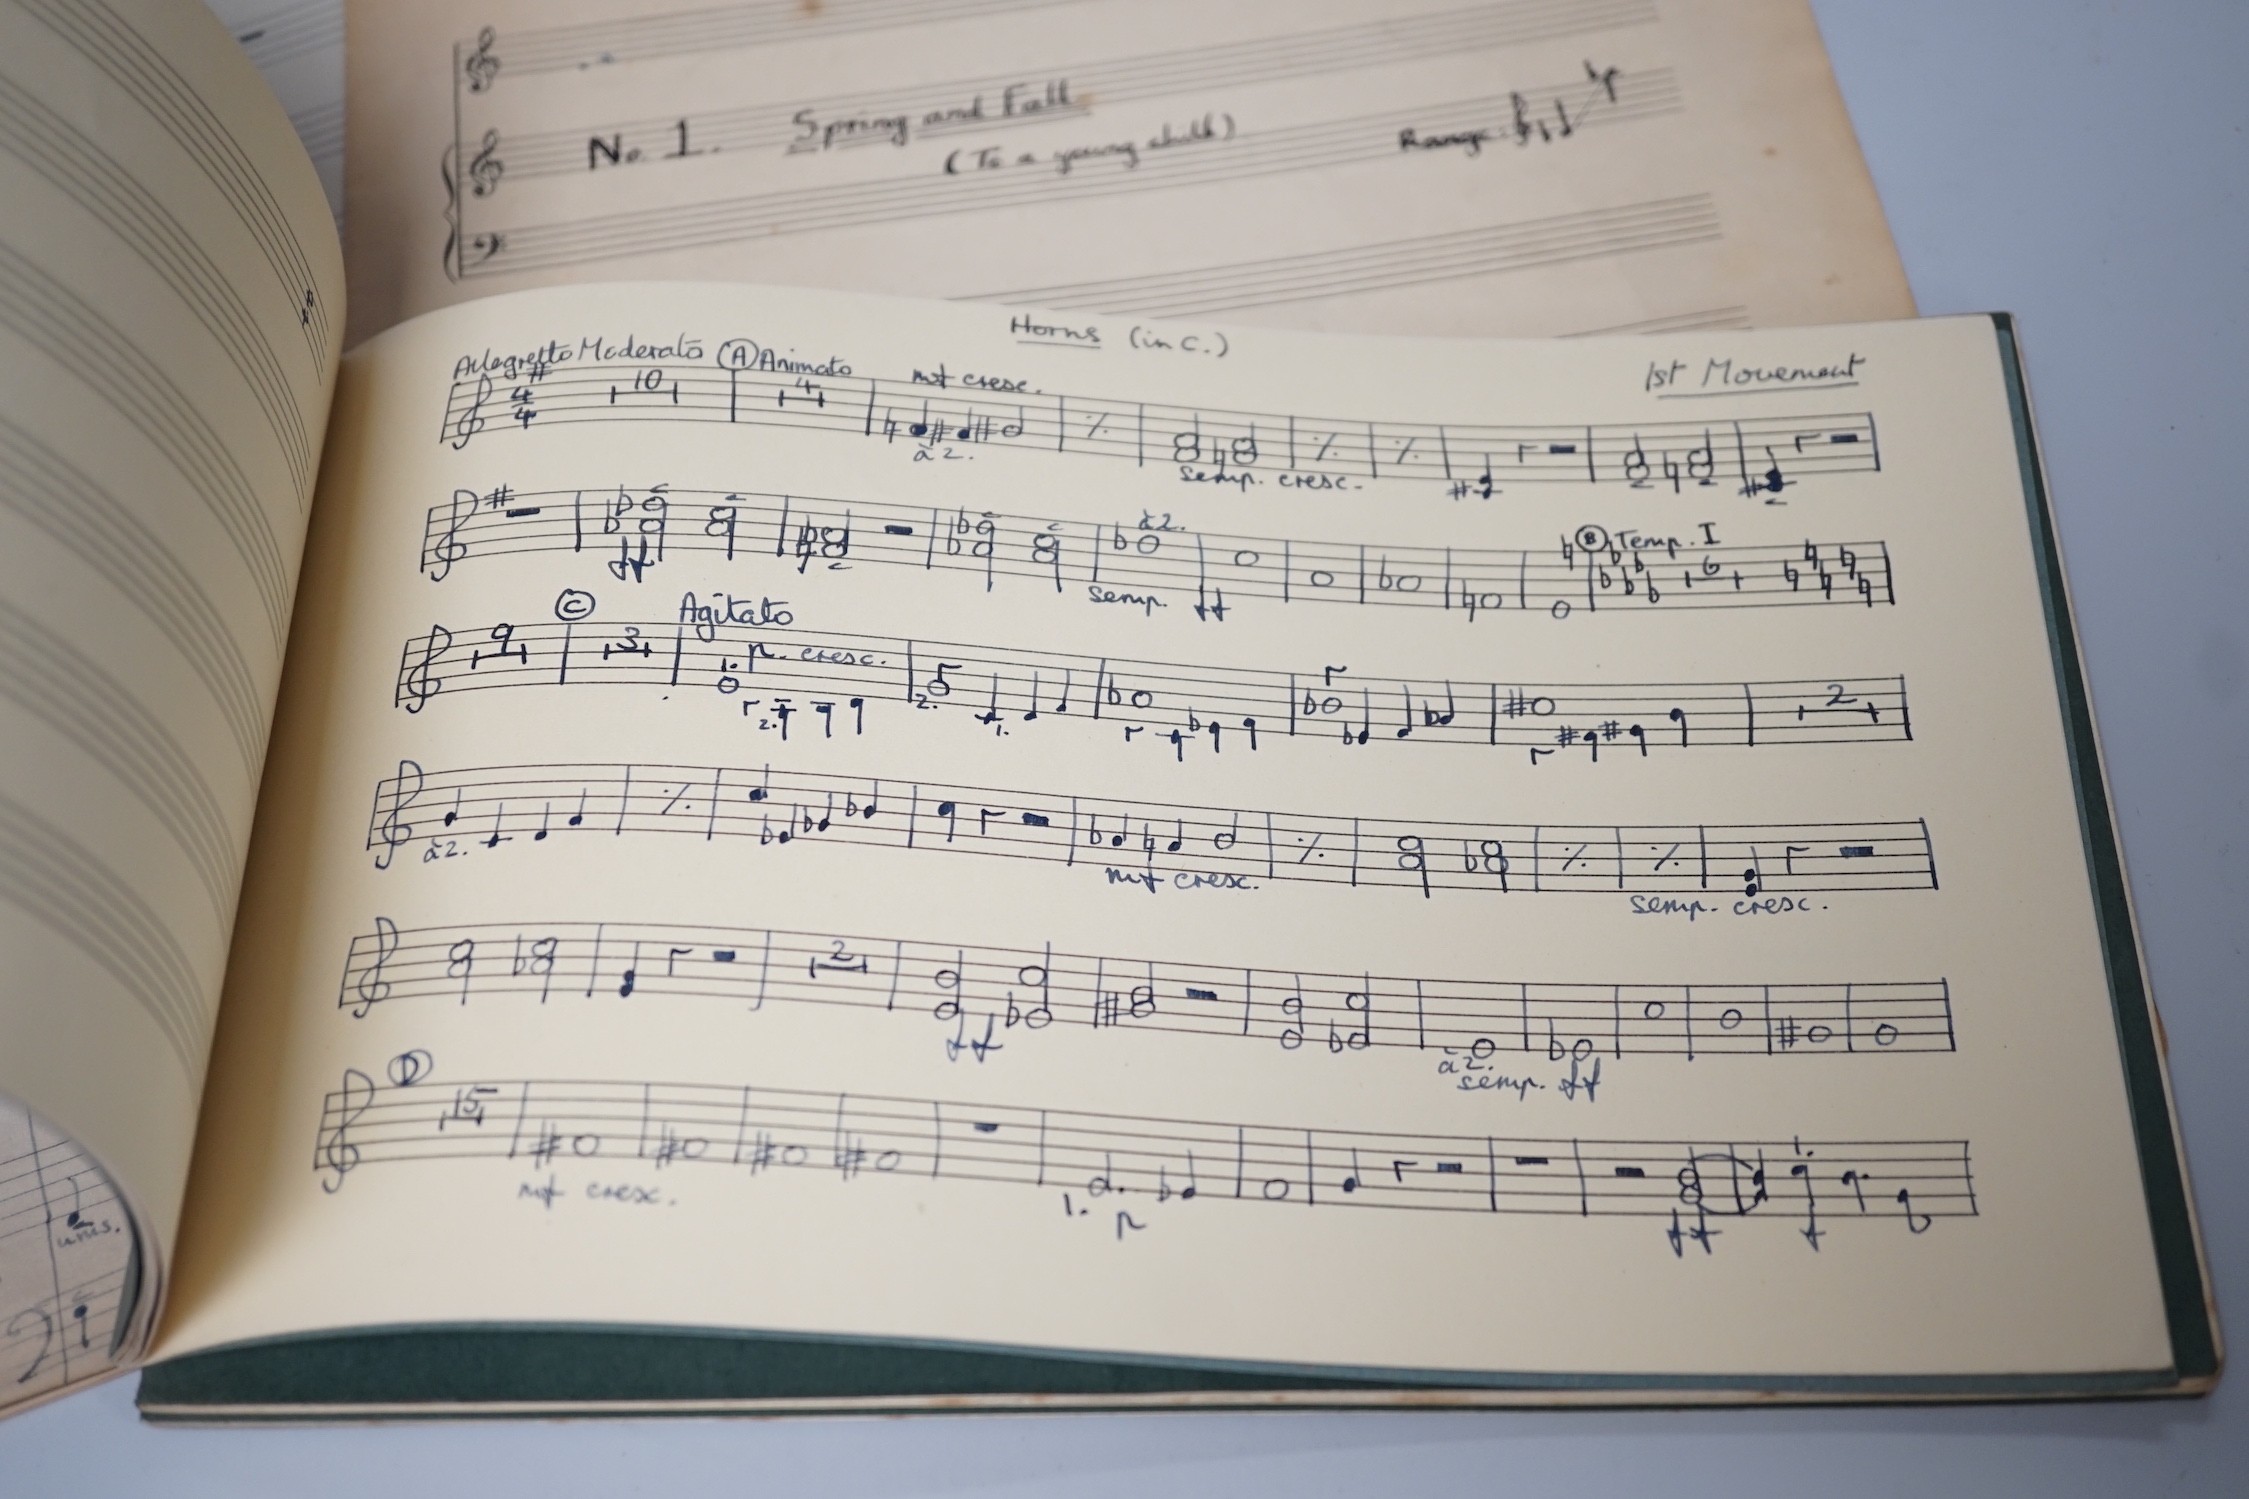 No. 1. Spring and Fall
(To a young child)
Range:
Horns (in C.)
1st Movement
Allegretto Moderato (A) Animato
4 4 10 4 mf cresc.
à 2.
semp. cresc.
ff à 2. semp. ff (B) Temp. I 6
(C) Agitato
9 3 1. p. cresc. 2. 2. 1. 2
à 2. mf cresc. semp. cresc.
2 ff à 2. semp. ff
(D)
15 mf cresc. 1. p ff 1. f
unis.